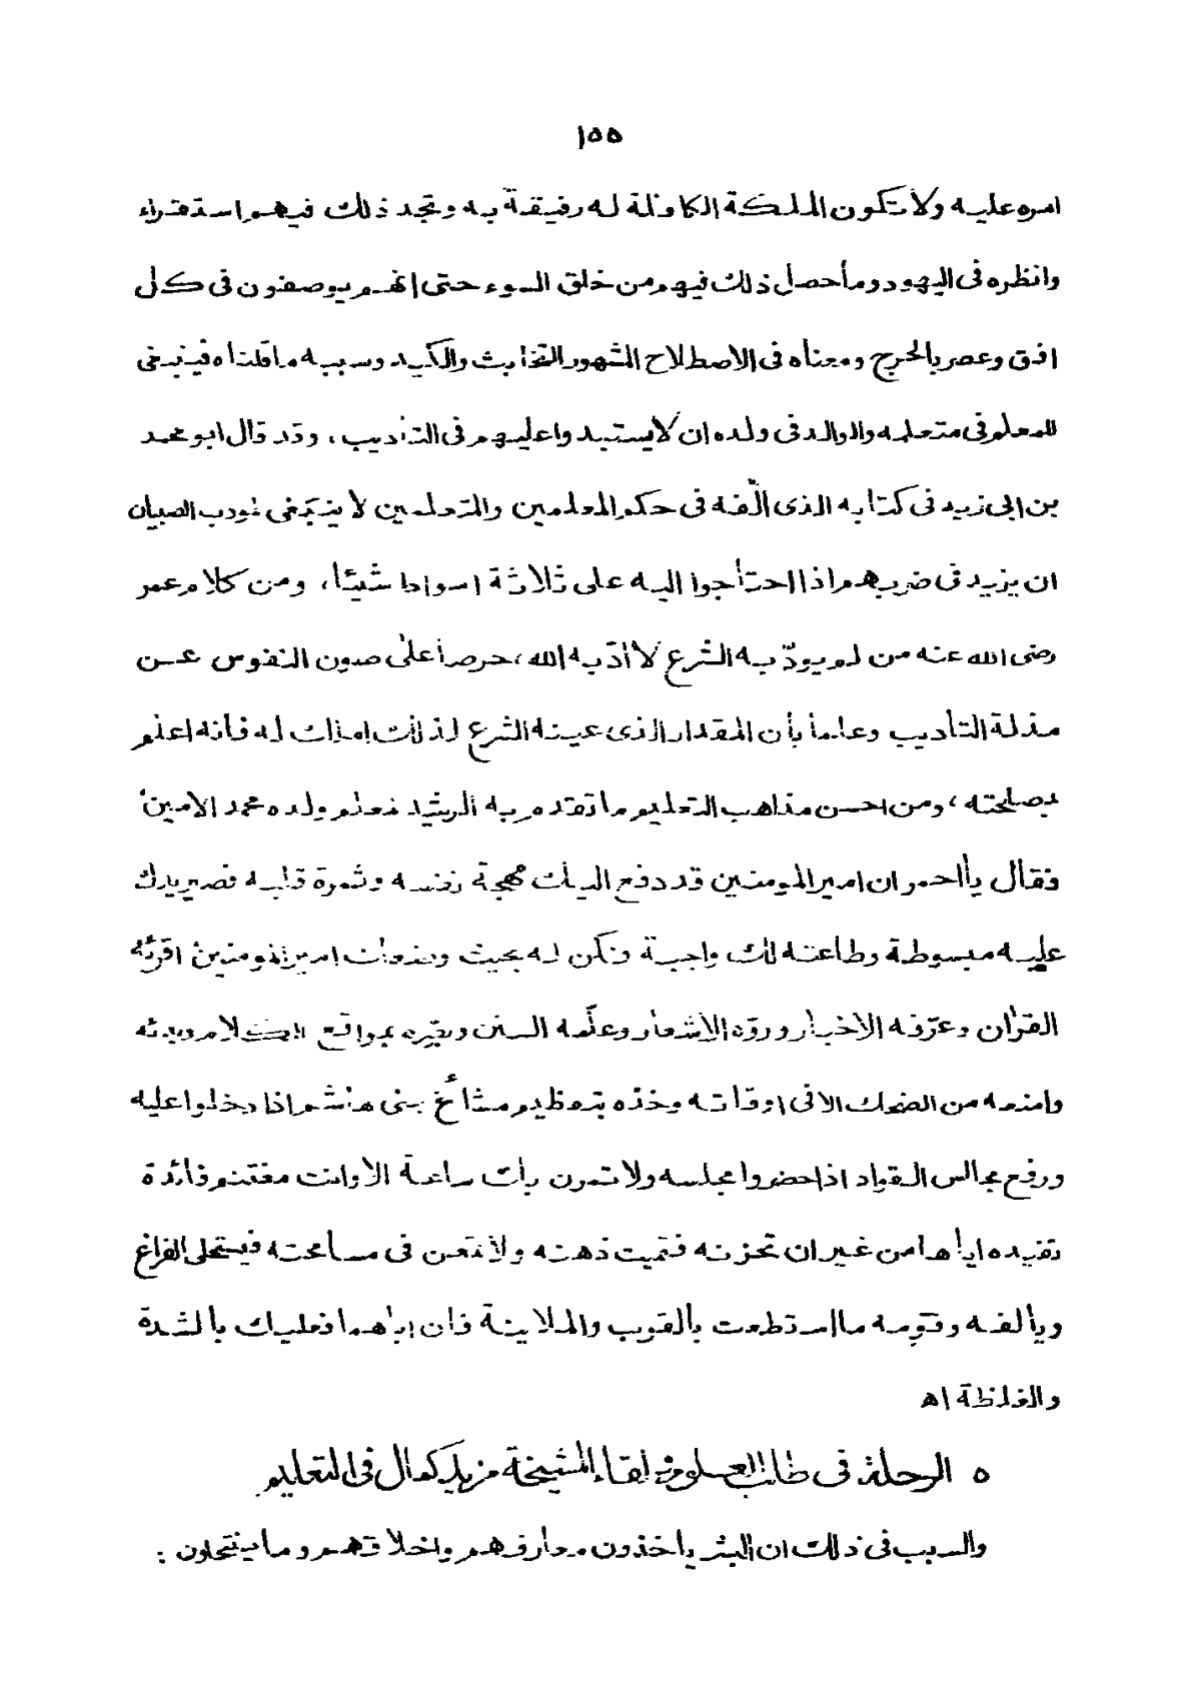 ١٥٥
امره عليه ولا تكون الملكة الكافلة له رفيقة به وتجد ذلك فيهم استقراء
وانظره فى اليهود وما حصل ذلك فيهم من خلق السوء حتى انهم يوصفون فى كل
افق وعصر بالحرج ومعناه فى الاصطلاح المشهور التخابث والكيد وسببه ما قلناه فينبغى
للمعلم فى متعلمه والوالد فى ولده ان لا يستبدوا عليهم فى التأديب، وقد قال ابو محمد
بن ابى زيد فى كتابه الذى ألّفه فى حكم المعلمين والمتعلمين لا ينبغى لمودب الصبيان
ان يزيد فى ضربهم اذا احتاجوا اليه على ثلاثة اسواط شيئا، ومن كلام عمر
رضى الله عنه من لم يودّبه الشرع لا أدّبه الله، حرصا على صون النفوس عن
مذلة التأديب وعلما بأن المقدار الذى عينه الشرع لذلك املك له فانه اعلم
بمصلحته، ومن احسن مذاهب التعليم ما تقدم به الرشيد لمعلم ولده محمد الامين
فقال يا احمر ان امير المومنين قد دفع اليك مهجة نفسه وثمرة قلبه فصير يدك
عليه مبسوطة وطاعته لك واجبة فكن له بحيث وضعك امير المومنين اقرئه
القرآن وعرّفه الاخبار وروّه الاشعار وعلّمه السنن وبصّره بمواقع الكلام وبدئه
وامنعه من الضحك الا فى اوقاته وخذه بتعظيم مشائخ بنى هاشم اذا دخلوا عليه
ورفع مجالس القواد اذا حضروا مجلسه ولا تمرن بك ساعة الا وانت مغتنم فائدة
تفيده اياها من غير ان تحزنه فتميت ذهنه ولا تمعن فى مسامحته فيستحلى الفراغ
ويألفه وقومه ما استطعت بالقرب والملاينة فان اباهما فعليك بالشدة
والغلظة اه
٥ الرحلة فى طلب العلوم ولقاء المشيخة مزيد كمال فى التعليم
والسبب فى ذلك ان البشر ياخذون معارفهم واخلاقهم وما ينتحلون :